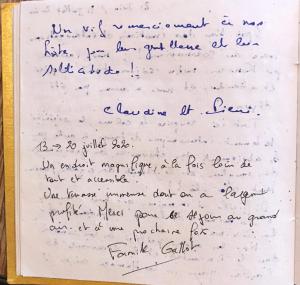 Un vif remerciement à nos
hôtes pour leur gentillesse et leur
Claudine et
13 → 20 juillet 2020.
Un endroit magnifique, à la fois loin de
tout et accessible.
Une terrasse immense dont on a largement
profité. Merci pour ce séjour au grand
air et à une prochaine fois
Famille Gallot